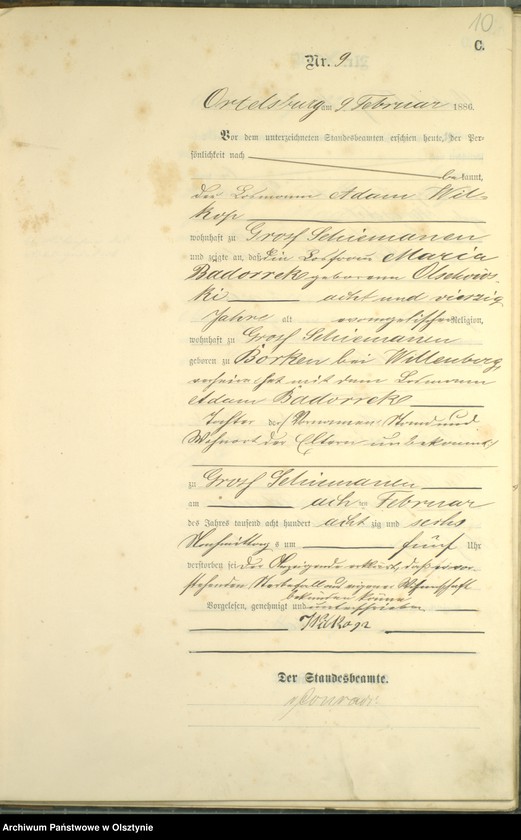 10
C.
Nr. 9.
Ortelsburg am 9. Februar 1886.
Vor dem unterzeichneten Standesbeamten erschien heute, der Per-
sönlichkeit nach
be kannt,
der Losmann Adam Wil-
kop
wohnhaft zu Groß Schiemanen
und zeigte an, daß die Losfrau Maria
Badorrek geborene Olschews-
ki acht und vierzig
Jahre alt evangelischer Religion,
wohnhaft zu Groß Schiemanen
geboren zu Borken bei Willenberg,
verheirathet mit dem Losmann
Adam Badorrek
Tochter der Vornamen Stand und
Wohnort der Eltern unbekannt
zu Groß Schiemanen
am achten Februar
des Jahres tausend acht hundert acht zig und sechs
Nachmittag s um fünf Uhr
verstorben sei. Der Anzeigende erklärt, daß er vor-
stehenden Sterbefall aus eigener Wissenschaft
bekunden könne
Vorgelesen, genehmigt und unterschrieben
Wilkop
Der Standesbeamte.
v Conradi
Archiwum Państwowe w Olsztynie